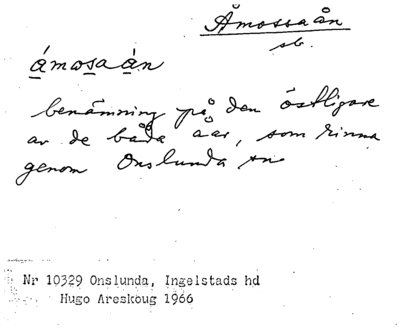 Åmossaån
sb.
åmosaån
benämning på den östligare
av de båda åar, som rinna
genom Onslunda sn
Nr 10329 Onslunda, Ingelstads hd
Hugo Areskoug 1966